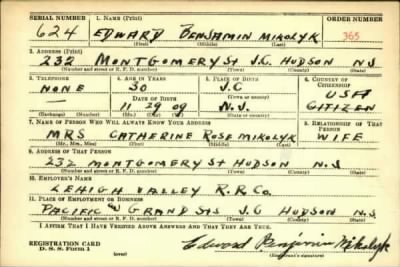 SERIAL NUMBER 1. NAME (Print) ORDER NUMBER
624 EDWARD BENJAMIN MIKOLYK 365
(First) (Middle) (Last)
2. ADDRESS (Print)
232 MONTGOMERY St J.C. HUDSON N.J
(Number and street or R. F. D. number) (Town) (County) (State)
3. TELEPHONE 4. AGE IN YEARS 5. PLACE OF BIRTH 6. COUNTRY OF CITIZENSHIP
NONE 30 J.C USA
DATE OF BIRTH (Town or county)
— 11 29 09 N.J. CITIZEN
(Exchange) (Number) (Mo.) (Day) (Yr.) (State or country)
7. NAME OF PERSON WHO WILL ALWAYS KNOW YOUR ADDRESS 8. RELATIONSHIP OF THAT PERSON
MRS CATHERINE ROSE MIKOLYK WIFE
(Mr., Mrs., Miss) (First) (Middle) (Last)
9. ADDRESS OF THAT PERSON
232 MONTGOMERY St HUDSON N.J
(Number and street or R. F. D. number) (Town) (County) (State)
10. EMPLOYER'S NAME
LEHIGH VALLEY R.R. Co.
11. PLACE OF EMPLOYMENT OR BUSINESS
PACIFIC GRAND STS J.C HUDSON N.J.
(Number and street or R. F. D. number) (Town) (County) (State)
I AFFIRM THAT I HAVE VERIFIED ABOVE ANSWERS AND THAT THEY ARE TRUE.
REGISTRATION CARD
D. S. S. FORM 1 (over) Edward Benjamin Mikolyk
(Registrant's signature)